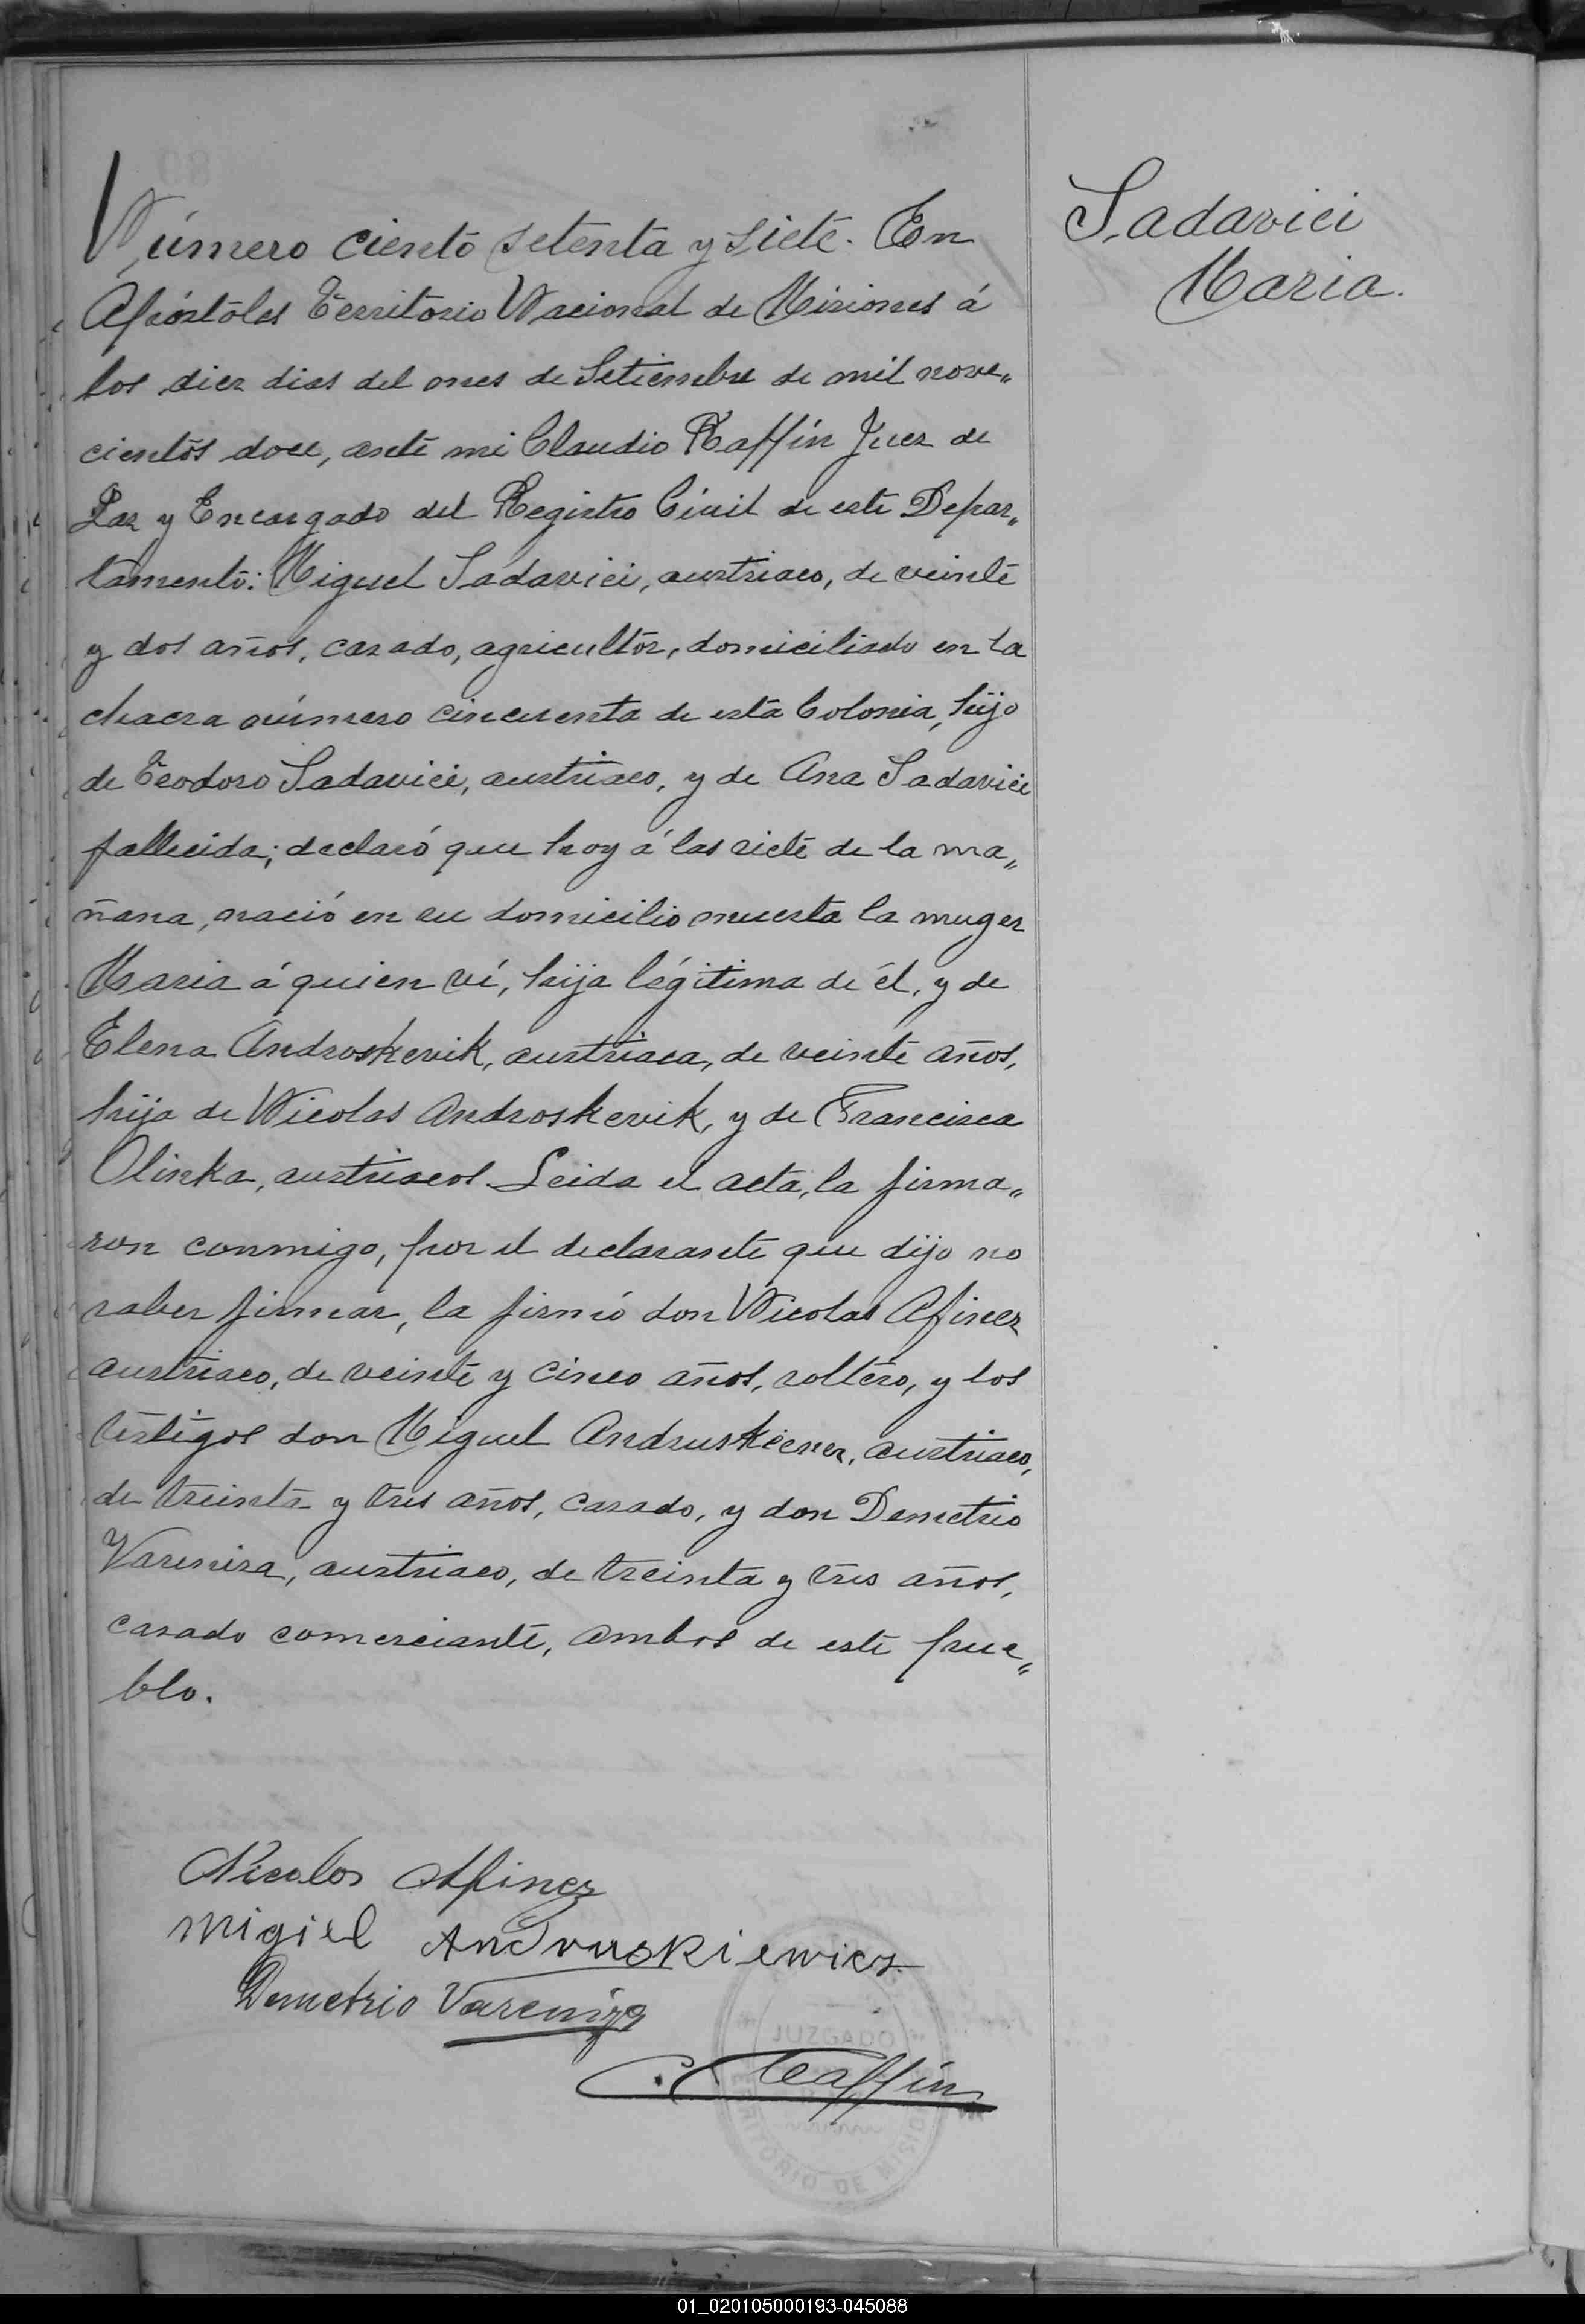 Número ciento setenta y siete. En
Apóstoles Territorio Nacional de Misiones á
los diez dias del mes de Setiembre de mil nove„
cientos doce, ante mi Claudio Raffin Juez de
Paz y Encargado del Registro Civil de este Depar„
tamento: Miguel Sadavici, austriaco, de veinte
y dos años, casado, agricultor, domiciliado en la
chacra número cincuenta de esta Colonia, hijo
de Teodoro Sadavici, austriaco, y de Ana Sadavici
fallecida; declaró que hoy á las siete de la ma„
ñana, nació en su domicilio muerta la muger
Maria á quien ví, hija légitima de él, y de
Elena Androskevik, austriaca, de veinte años,
hija de Nicolas Androskevik, y de Francisca
Olinka, austriacos. Leida el acta, la firma„
ron conmigo, por el declarante que dijo no
saber firmar, la firmó don Nicolas Afinez
austriaco, de veinte y cinco años, soltero, y los
testigos don Miguel Andruskiewez, austriaco,
de treinta y tres años, casado, y don Demetrio
Vareniza, austriaco, de treinta y tres años,
casado comerciante, ambos de este pue„
blo.
Sadavici
Maria.
Nicolas Afinez
Migiel Andruskiewicz
Demetrio Vareniza
C. Raffin
JUZGADO
TERRITORIO DE MISIONES
01_020105000193-045088